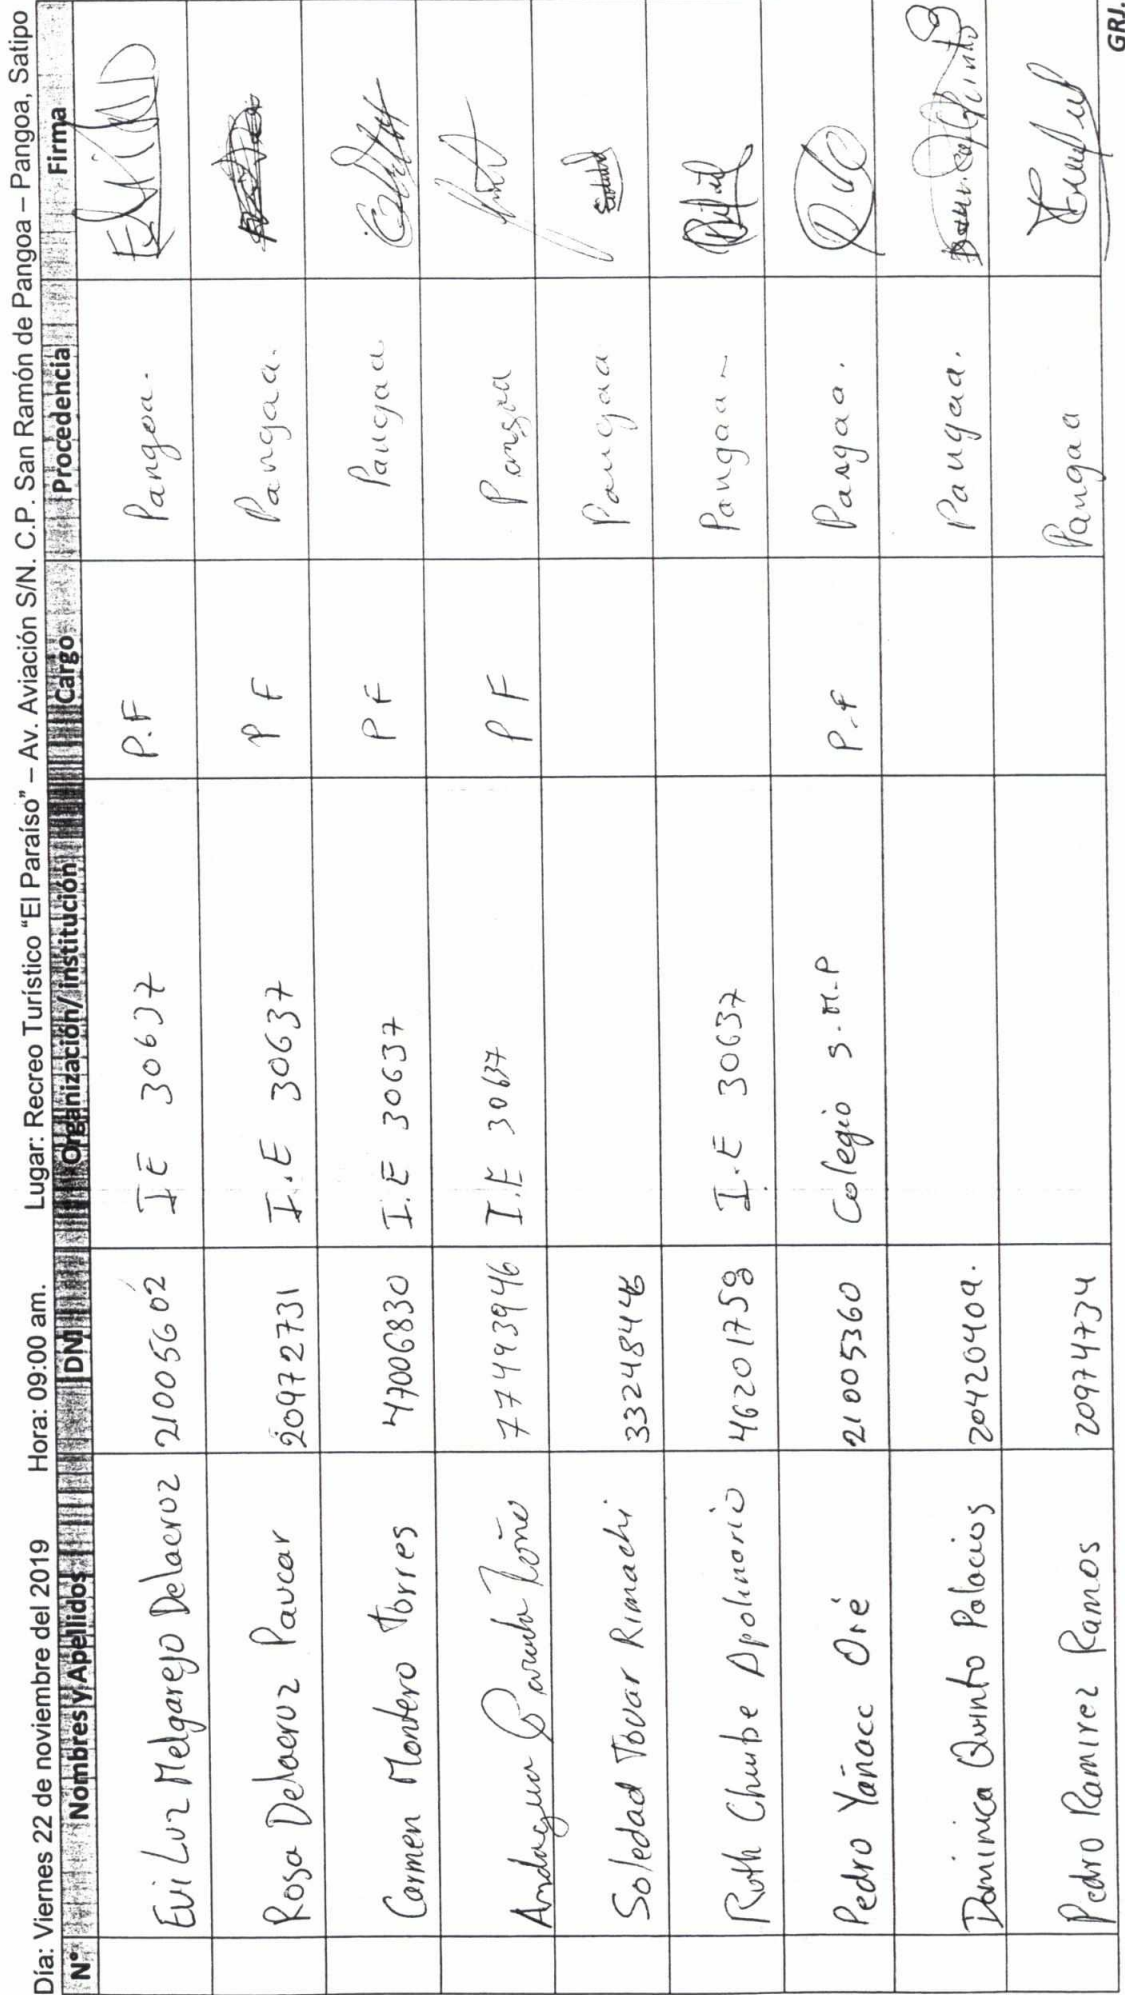 Día: Viernes 22 de noviembre del 2019 Hora: 09:00 am. Lugar: Recreo Turístico "El Paraíso" – Av. Aviación S/N. C.P. San Ramón de Pangoa – Pangoa, Satipo
N° Nombres y Apellidos DNI Organización/institución Cargo Procedencia Firma
Evi Luz Melgarejo Delacruz 21005602 IE 30637 P.F Pangoa.
Rosa Delacruz Paucar 20972731 I.E 30637 P F Pangoa.
Carmen Montero Torres 47006830 I.E 30637 P F Pangoa
77493946 I.E 30637 P F Pangoa
Soledad Tovar Rimachi Pangoa
Ruth Chumbe Apolinario 46201759 I.E 30637 Pangoa
Pedro Yañacc Oré 21005360 Colegio S.M.P P.F Pangoa.
Dominica Quinto Palacios 20420409. Pangoa.
Pedro Ramirez Ramos 20974734 Pangoa
GRJ.